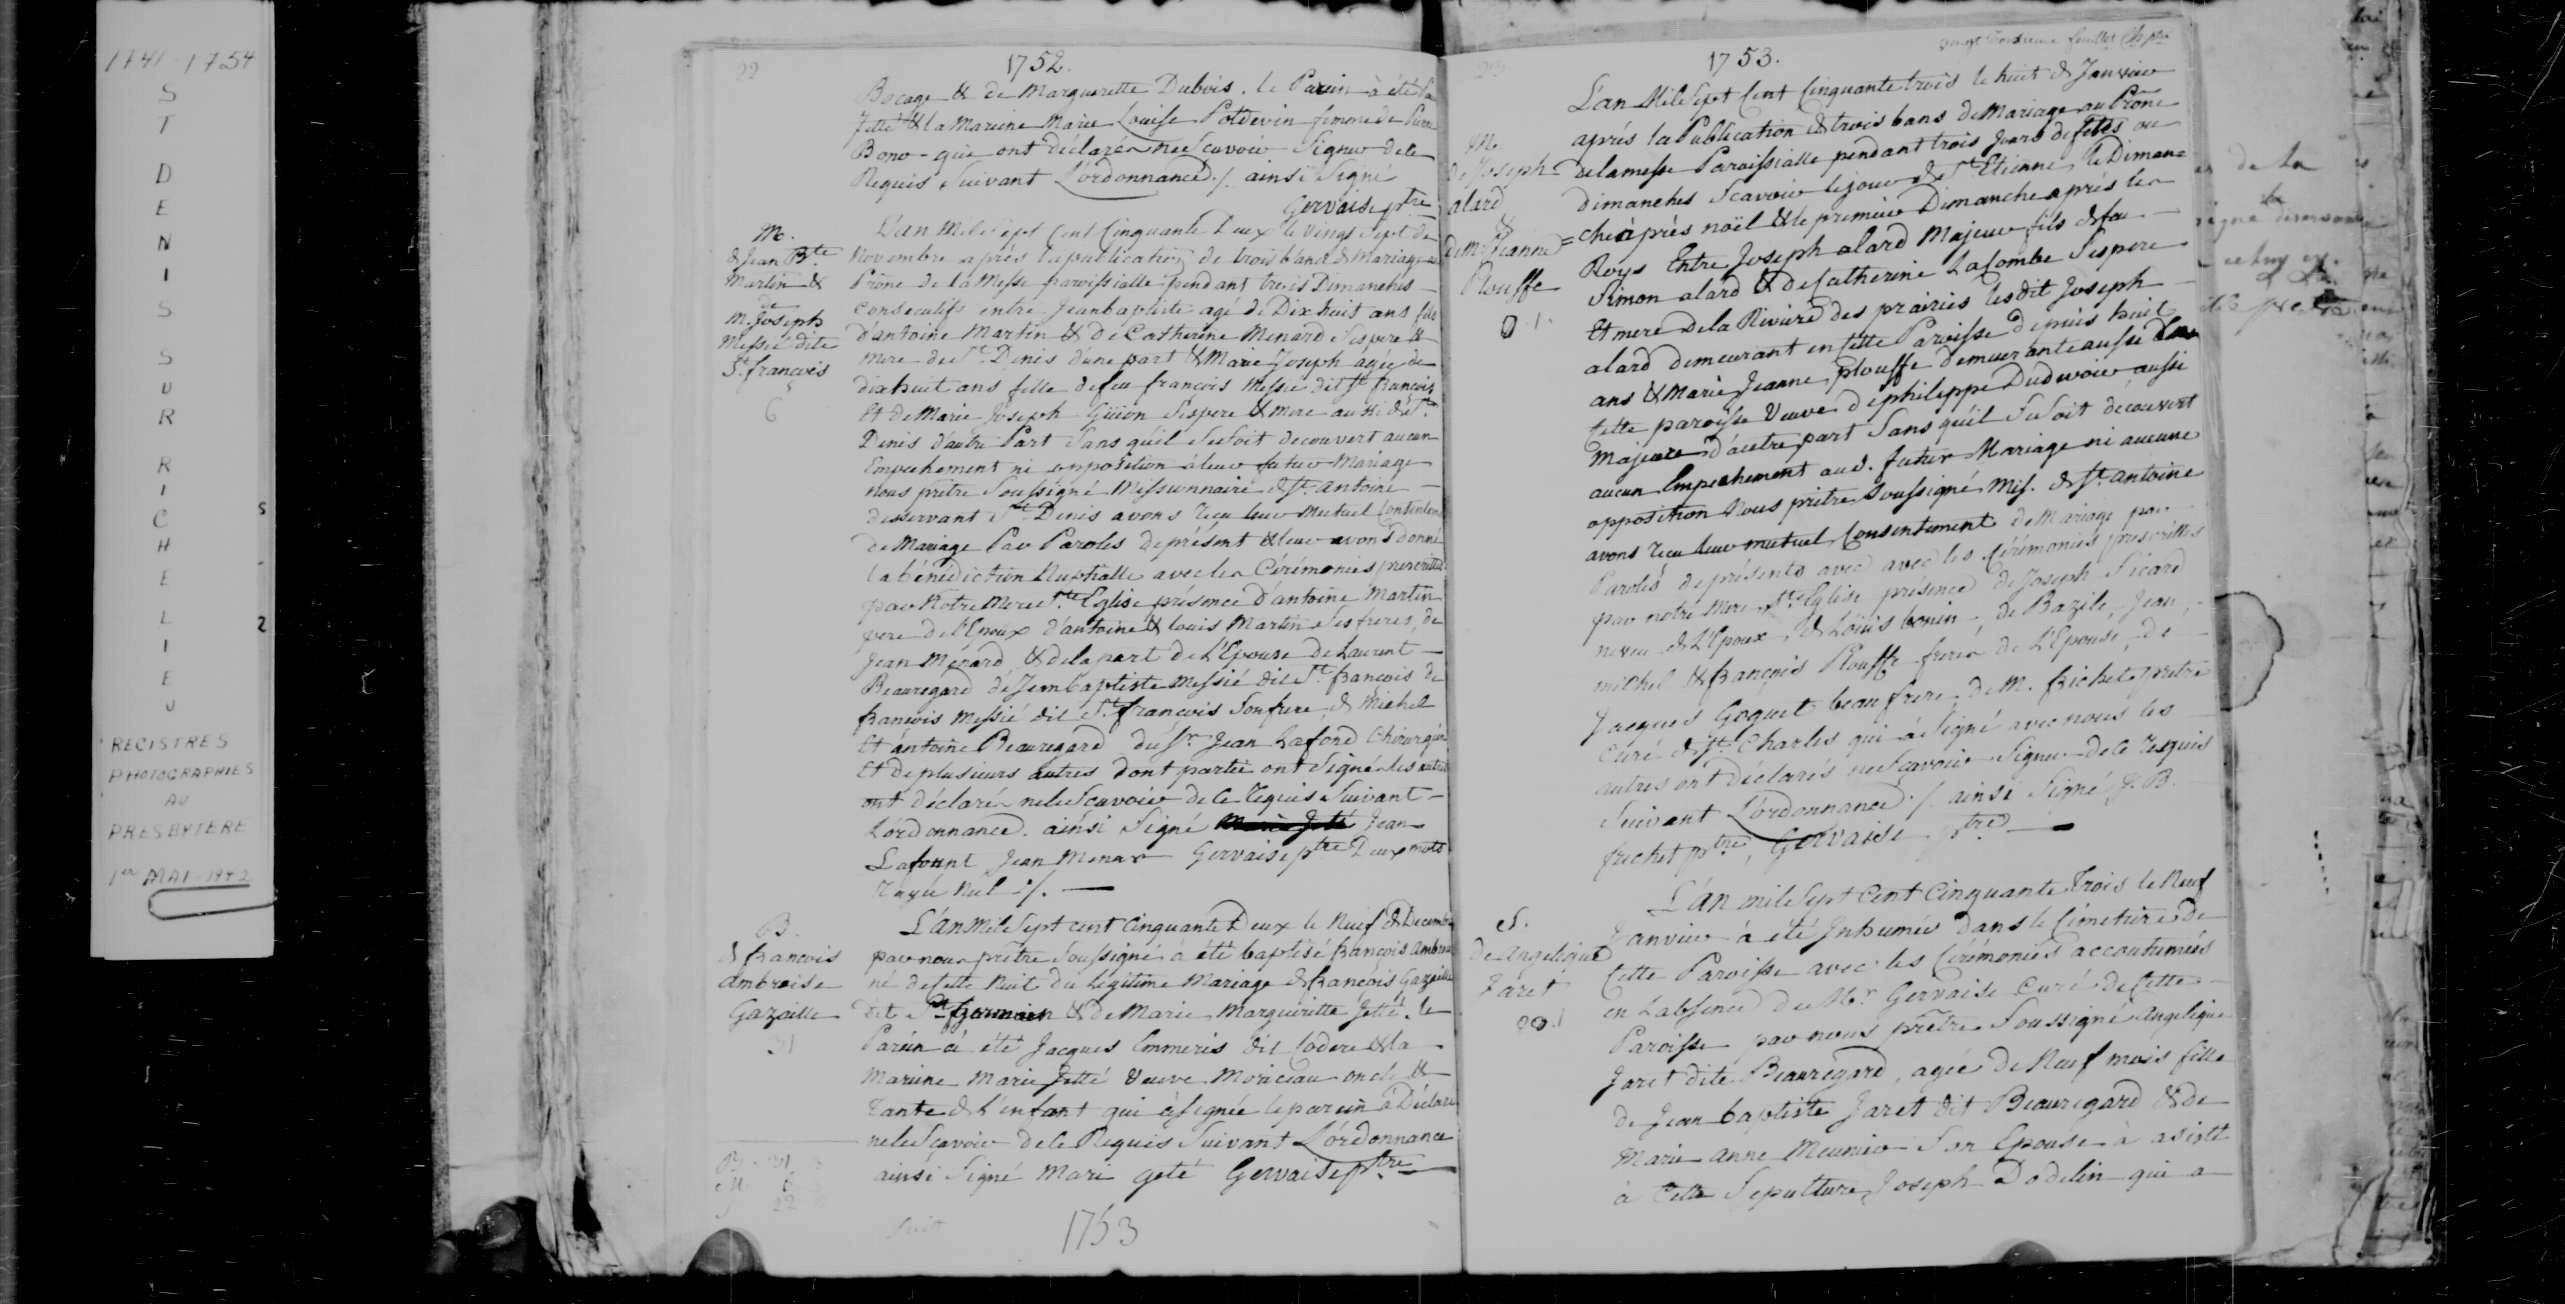 1741-1754
ST DENIS SUR RICHELIEU
REGISTRES
PHOTOGRAPHIES
AU
PRESBYTERE
1er MAI 1942
22
1752.
Bocage & de Marguerette Dubois. le Parein à été
Jetté & la Mareine Marie Louise Potdevin femme de
Bono - qui ont déclarés ne Scavoir Signer de ce
Requis Suivant L'ordonnance ./. ainsi Signé
Gervaise ptre
M.
de Jean Bte
Martin &
de
M. Joseph
Messié dite
St. francois
6
L'an Mile Sept Cent Cinquante Deux le vingt Sept de
Novembre après la publication de trois bans de Mariage au
Prône de la Messe paroissialle pendant trois Dimanches
Consecutifs entre Jeanbaptiste agé de Dix huit ans fils
d'antoine Martin & de Catherine Menard Ses pere &
mere de St. Denis d'une part & Marie Joseph agée de
dixhuit ans fille de feu françois Messié dit St. françois
Et de Marie Joseph Guion Ses pere & mere aussi de St.
Denis d'autre Part Sans qu'il Se Soit decouvert aucun
Empechement ni opposition à leur futur Mariage
nous prêtre Soussigné Missionnaire de St. antoine
desservant St. Denis avons reçu leur Mutuel Consentement
de Mariage Par Paroles de présent & leur avons donné
la bénédiction Nuptialle avec les Cérémonies prescrittes
par Notre Mere Ste. Eglise présence d'antoine Martin
pere de l'Epoux d'antoine & louis Martin Ses freres, de
Jean Ménard, & de la part de L'Epouse de Laurent
Beauregard de Jeanbaptiste Messié dit St. françois de
françois Messié dit St. françois Son frere, de Michel
Et antoine Beauregard du Sr. Jean Lafond Chirurgien
Et de plusieurs autres dont partie ont Signé les autres
ont déclarés ne le Scavoir de ce requis Suivant
L'ordonnance. ainsi Signé Jean
Lafont Jean Menar Gervaise ptre Deux mots
rayé nul ./.
B.
de francois
ambroise
Gazaille
31
L'an Mile Sept cent Cinquante Deux le Neuf de Decembre
par nous prêtre Soussigné à été baptisé françois ambroise
né de cette Nuit du légitime Mariage de françois Gazaille
dit St. germain & de Marie Marguerite Jetté. le
Parein à été Jacques Emmeris dit Codere & la
Mareine Marie Jetté Veuve Moriceau oncle &
Tante de l'enfant qui à signée le parein à Déclaré
ne le Scavoir de ce Requis Suivant L'ordonnance
ainsi Signé Mari geté Gervaise ptre
B. 31
M. 6
S 22
1753
23
1753.
M.
de Joseph
alard
&
de M. Jeanne
Plouffe
L'an Mile Sept Cent Cinquante trois le huit de Janvier
après la Publication de trois bans de Mariage au Prône
de la messe Paroissialle pendant trois Jours de fêtes ou
dimanches Scavoir le jour de St. Etienne, le Diman=
=che après noël & le premier Dimanche après les
Roys Entre Joseph alard Majeur fils de feu
Simon alard & de Catherine Lacombe Ses pere
Et mere De la Riviere des prairies les dit Joseph
alard demeurant en Cette Paroisse depuis huit
ans & Marie Jeanne plouffe demeurante aussi dans
Cette paroisse Veuve de philippe Dudevoir aussi
Majeure d'autre part Sans qu'il Se Soit découvert
aucun Empechement aud. futur Mariage ni aucune
opposition Nous prêtre Soussigné Mis. de St. antoine
avons reçu leur mutuel Consentement de Mariage par
Paroles de présents avec avec les Cérémonies prescrittes
par notre Mere Ste Eglise présence de Joseph Sicard
neveu de L'Epoux & Louis bonin, de Bazile, Jean,
michel & françois Plouffe freres de L'Epouse, de
Jacques Goguet beaufrere, de M. frichet prêtre
Curé de St. Charles qui à Signé avec nous les
autres ont déclarés ne Scavoir Signer de ce requis
Suivant L'ordonnance ./. ainsi Signé J. B.
frichet ptre, Gervaise ptre
S.
de Angelique
Jaret
L'An mile Sept Cent Cinquante Trois le Neuf
Janvier à été Inhumée dans le Cimetiere de
Cette Paroisse avec les Cérémonies accoutumées
en L'absence du Mr. Gervaise Curé de Cette
Paroisse par nous prêtre Soussigné Angelique
Jaret dite Beauregard, agée de Neuf mois fille
de Jean baptiste Jaret dit Beauregard & de
Marie anne Meunier Son Epouse à asisté
à Cette Sepulture Joseph Dodelin qui a